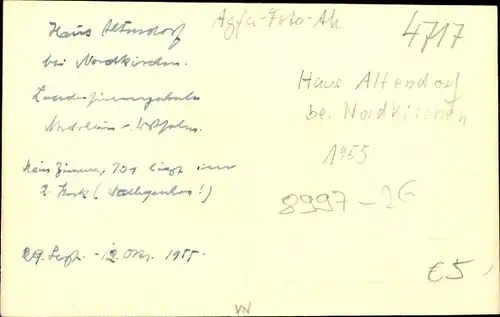 Haus Altendorf
bei Nordkirchen.
Landesfinanzschule
Nordrhein-Westfalen.
Mein Zimmer, 701 liegt im
2. Stock
29. Sept. - 12. Okt. 1955.
Agfa-Foto-Ak
4717
Haus Altendorf
be. Nordkirchen
1955
8997-26
€5,
VN